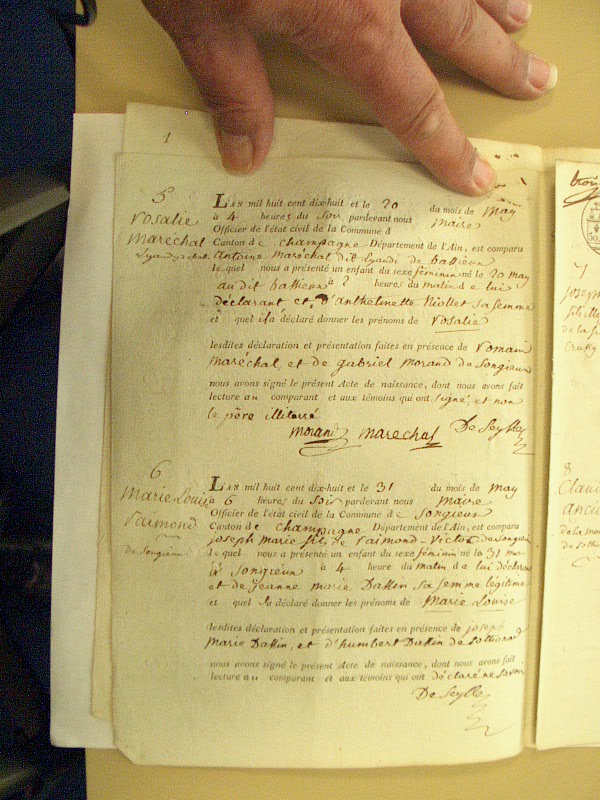 1
5
Rosalie
Maréchal
LES mil huit cent dix-huit et le 20 du mois de May
à 4 heures du Soir pardevant nous Maire
Officier de l'état civil de la Commune d
Canton de Champagne Département de l'Ain, est comparu
Antoine Maréchal dit Lyaudi de bassieux
le quel nous a présenté un enfant du sexe féminin né le 20 may
au dit bassieux à 2 heures du matin de lui
déclarant et d'anthelmette Niollet sa femme
et quel il a déclaré donner les prénoms de Rosalie
lesdites déclaration et présentation faites en présence de Romain
Maréchal, et de gabriel Morand de Songieux
nous avons signé le présent Acte de naissance, dont nous avons fait
lecture au comparant et aux témoins qui ont signé et non
le père illiterré
Morand Marechal De Seylle
6
Marie Louise
Raimond
de Songieux
LES mil huit cent dix-huit et le 31 du mois de May
à 6 heures du Soir pardevant nous Maire
Officier de l'état civil de la Commune de Songieux
Canton de Champagne Département de l'Ain, est comparu
joseph Marie fils de Raimond-Victor de songieux
le quel nous a présenté un enfant du sexe féminin né le 31 may
à Songieux à 4 heure du matin de lui déclarant
et de jeanne marie Dallin sa femme légitime
et quel a déclaré donner les prénoms de Marie Louise
lesdites déclaration et présentation faites en présence de joseph
Marie Dallin, et d'humbert Dallin de sothonod
nous avons signé le présent Acte de naissance, dont nous avons fait
lecture au comparant et aux témoins qui ont déclaré ne savoir
De Seylle
7
joseph
8
Claud